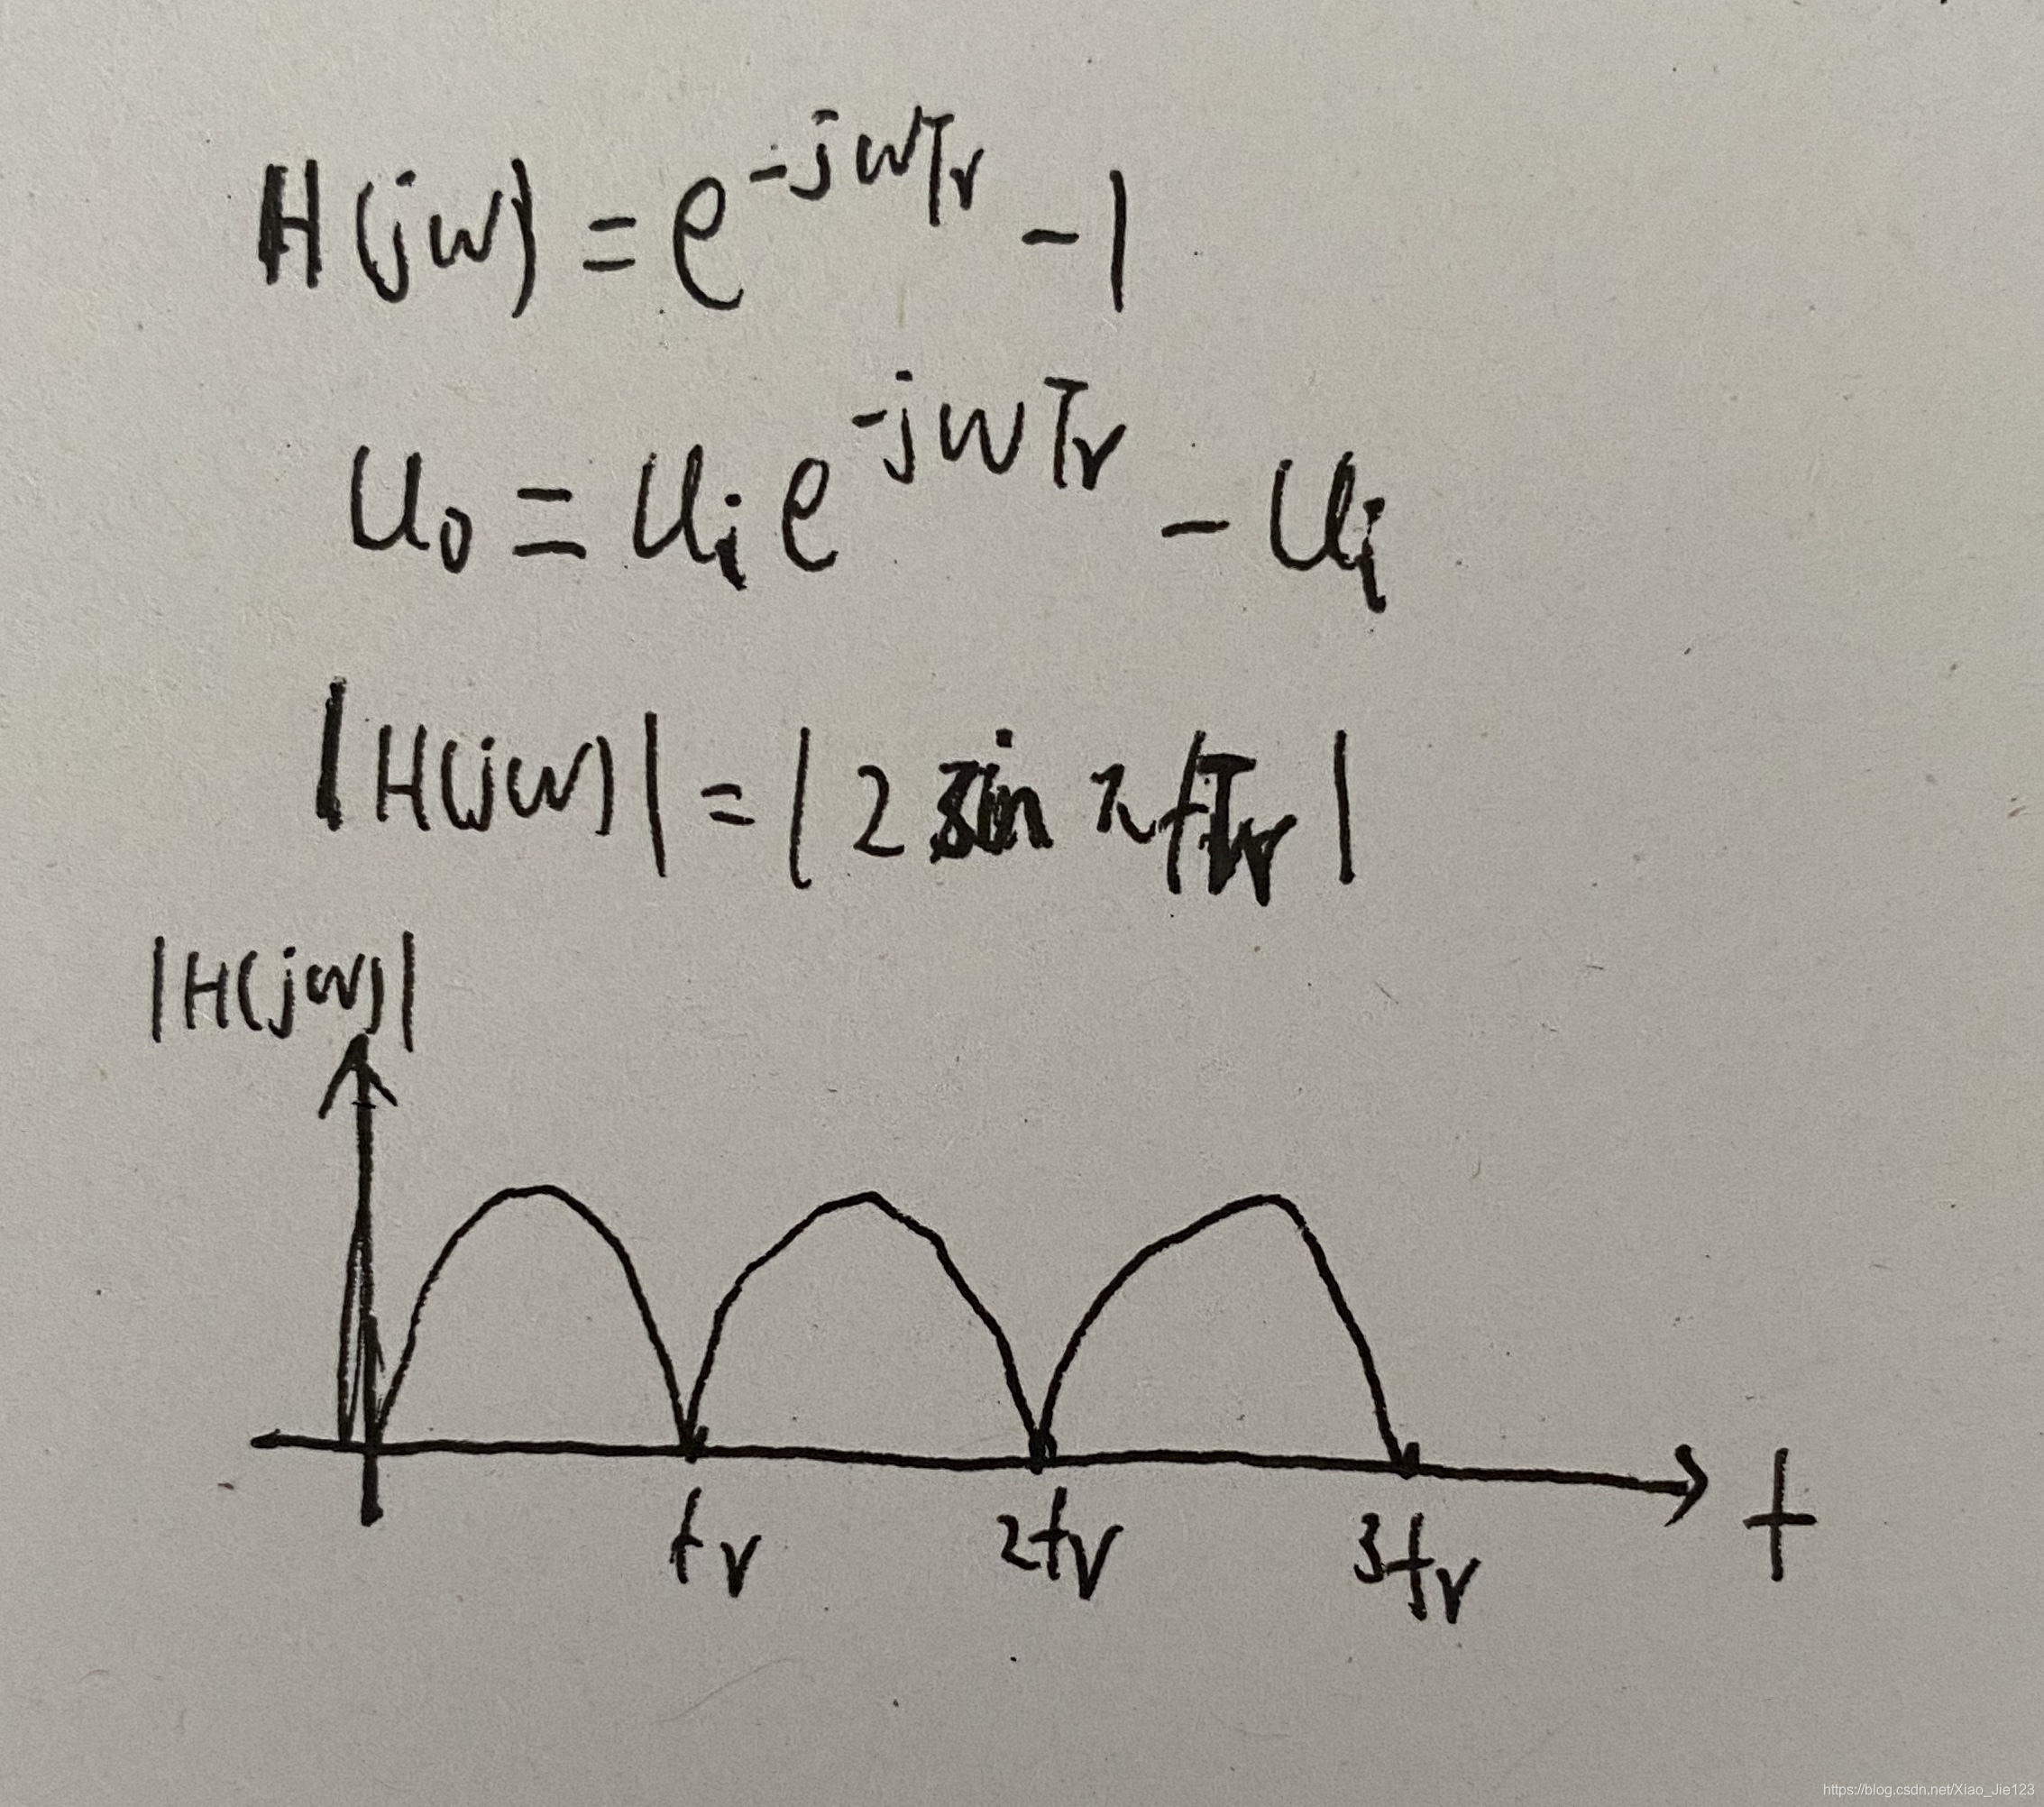 H(jw) = e^{-jwTr} - 1
U₀ = Uᵢ e^{-jwTr} - Uᵢ
|H(jw)| = |2 sin πfTr|
|H(jw)|
fr 2fr 3fr f
https://blog.csdn.net/Xiao_Jie123